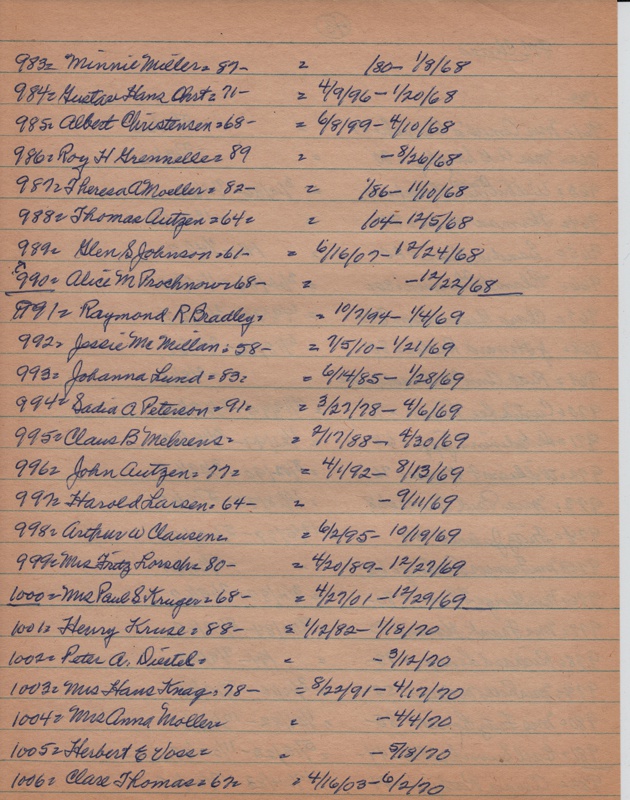 983= Minnie Miller = 87- = /80- 1/8/68
984= Gustav Hans Ohrt = 71- = 4/9/96 - 1/20/68
985= Albert Christensen = 68- = 6/8/99 - 4/10/68
986= Roy H Grennelle = 89 = - 8/26/68
987= Theresa A Moeller = 82- = 1/86 - 11/10/68
988= Thomas Autzen = 64= = /04 - 12/5/68
989= Glen S Johnson = 61- = 6/16/07 - 12/24/68
990= Alice M Prochnow = 68- = - 12/22/68
991= Raymond R Bradley = = 10/7/94 - 1/4/69
992= Jessie Mc Millan = 58- = 7/5/10 - 1/21/69
993= Johanna Lund = 83= = 6/14/85 - 1/28/69
994= Sadia A Peterson = 91= = 3/27/78 - 4/6/69
995= Claus B Mehrens = = 2/17/88 - 4/30/69
996= John Autzen = 77= = 4/1/92 - 8/13/69
997= Harold Larsen = 64- = - 9/11/69
998= Arthur W Clausen = = 6/2/95 - 10/19/69
999= Mrs Fritz Lorsch = 80- = 4/20/89 - 12/27/69
1000= Mrs Paul S Kruger = 68- = 4/27/01 - 12/29/69
1001= Henry Kruse = 88- = 1/12/82 - 1/18/70
1002= Peter A. Dietel = = - 3/12/70
1003= Mrs Hans Knag = 78- = 8/22/91 - 4/17/70
1004= Mrs Anna Moller = = - 4/4/70
1005= Herbert E Voss = = - 5/18/70
1006= Clare Thomas = 67= = 4/16/03 - 6/2/70